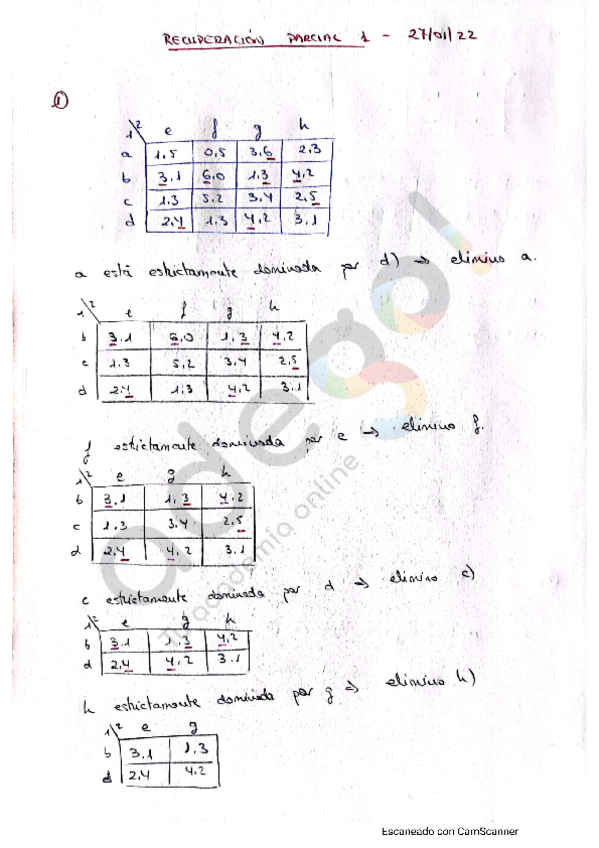 RECUPERACIÓN PARCIAL 1 - 27/01/22
①
1\2 e f g h
a 1,5 0,5 3,6 2,3
b 3,1 6,0 1,3 4,2
c 1,3 5,2 3,4 2,5
d 2,4 1,3 4,2 3,1
a está estrictamente dominada por d) → elimino a.
1\2 e f g h
b 3,1 6,0 1,3 4,2
c 1,3 5,2 3,4 2,5
d 2,4 1,3 4,2 3,1
f estrictamente dominada por e → elimino f.
1\2 e g h
b 3,1 1,3 4,2
c 1,3 3,4 2,5
d 2,4 4,2 3,1
c estrictamente dominada por d → elimino c)
1\2 e g h
b 3,1 1,3 4,2
d 2,4 4,2 3,1
h estrictamente dominada por g → elimino h)
1\2 e g
b 3,1 1,3
d 2,4 4,2
adego!
Tu academia online
Escaneado con CamScanner